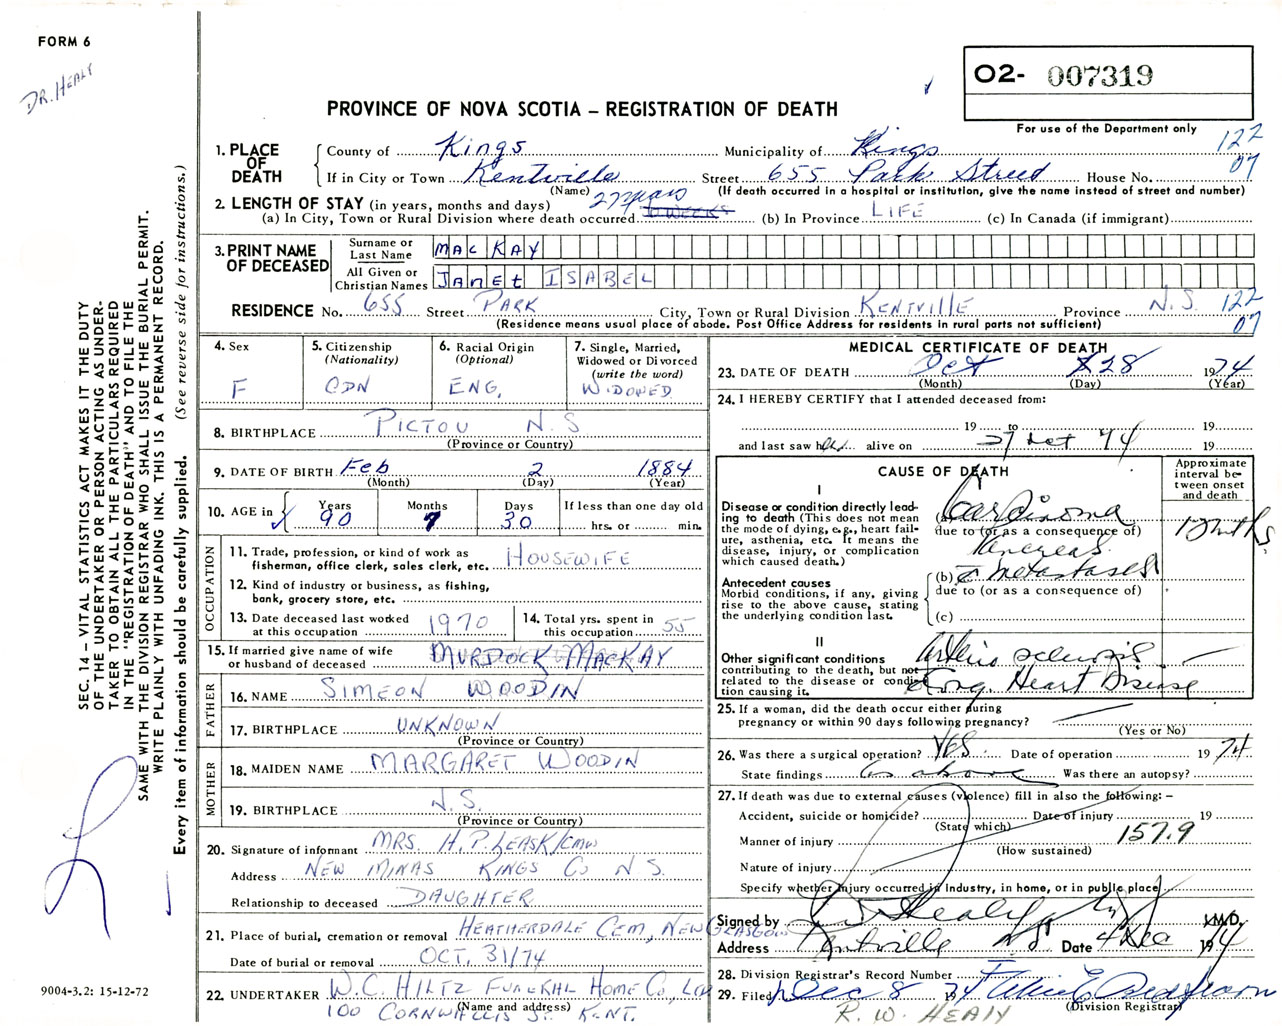 FORM 6
DR. HEALY
O2- 007319
PROVINCE OF NOVA SCOTIA – REGISTRATION OF DEATH
For use of the Department only
122
07
1. PLACE OF DEATH
County of Kings Municipality of Kings
If in City or Town Kentville Street 655 Park Street House No.
(Name) (If death occurred in a hospital or institution, give the name instead of street and number)
2. LENGTH OF STAY (in years, months and days) 27 years
(a) In City, Town or Rural Division where death occurred (b) In Province LIFE (c) In Canada (if immigrant)
3. PRINT NAME OF DECEASED
Surname or Last Name MAC KAY
All Given or Christian Names JANET ISABEL
RESIDENCE No. 655 Street PARK City, Town or Rural Division KENTVILLE Province N.S. 122
07
(Residence means usual place of abode. Post Office Address for residents in rural parts not sufficient)
4. Sex
F
5. Citizenship
(Nationality)
CDN
6. Racial Origin
(Optional)
ENG.
7. Single, Married, Widowed or Divorced
(write the word)
WIDOWED
8. BIRTHPLACE PICTOU N.S
(Province or Country)
9. DATE OF BIRTH Feb 2 1884
(Month) (Day) (Year)
10. AGE in
Years Months Days If less than one day old
90 7 30 hrs. or min.
OCCUPATION
11. Trade, profession, or kind of work as
fisherman, office clerk, sales clerk, etc. HOUSEWIFE
12. Kind of industry or business, as fishing,
bank, grocery store, etc.
13. Date deceased last worked
at this occupation 1970
14. Total yrs. spent in
this occupation 55
15. If married give name of wife
or husband of deceased MURDOCK MACKAY
FATHER
16. NAME SIMEON WOODIN
17. BIRTHPLACE UNKNOWN
(Province or Country)
MOTHER
18. MAIDEN NAME MARGARET WOODIN
19. BIRTHPLACE N.S.
(Province or Country)
20. Signature of informant MRS. H.P. LEASK/CMW
Address NEW MINAS KINGS CO N S.
Relationship to deceased DAUGHTER
21. Place of burial, cremation or removal HEATHERDALE CEM, NEW GLASGOW
Date of burial or removal OCT, 31/74
22. UNDERTAKER W.C. HILTZ FUNERAL HOME CO., LTD
(Name and address)
100 CORNWALLIS ST. KENT.
MEDICAL CERTIFICATE OF DEATH
23. DATE OF DEATH Oct 28 1974
(Month) (Day) (Year)
24. I HEREBY CERTIFY that I attended deceased from:
19 to 19
and last saw her alive on 27 Oct 74 19
CAUSE OF DEATH
Approximate interval between onset and death
I
Disease or condition directly leading to death (This does not mean the mode of dying, e.g., heart failure, asthenia, etc. It means the disease, injury, or complication which caused death.)
(a) Carcinoma
due to (or as a consequence of)
Pancreas
12 mths.
Antecedent causes
Morbid conditions, if any, giving rise to the above cause, stating the underlying condition last.
(b) c̄ metastases
due to (or as a consequence of)
(c)
II
Other significant conditions
contributing to the death, but not related to the disease or condition causing it.
Arterio sclerosis
Cong. Heart Disease
25. If a woman, did the death occur either during
pregnancy or within 90 days following pregnancy?
(Yes or No)
26. Was there a surgical operation? YES Date of operation 1974
State findings as above Was there an autopsy?
27. If death was due to external causes (violence) fill in also the following: –
Accident, suicide or homicide? Date of injury 19
(State which)
Manner of injury 157.9
(How sustained)
Nature of injury
Specify whether injury occurred in Industry, in home, or in public place
Signed by Healy M.D.
Address Kentville NS Date 4 Dec 1974
28. Division Registrar's Record Number
29. Filed Dec 8 1974
(Division Registrar)
R. W. HEALY
SEC. 14 – VITAL STATISTICS ACT MAKES IT THE DUTY
OF THE UNDERTAKER OR PERSON ACTING AS UNDER-
TAKER TO OBTAIN ALL THE PARTICULARS REQUIRED
IN THE "REGISTRATION OF DEATH" AND TO FILE THE
SAME WITH THE DIVISION REGISTRAR WHO SHALL ISSUE THE BURIAL PERMIT.
WRITE PLAINLY WITH UNFADING INK. THIS IS A PERMANENT RECORD.
Every item of information should be carefully supplied. (See reverse side for instructions.)
9004-3.2: 15-12-72